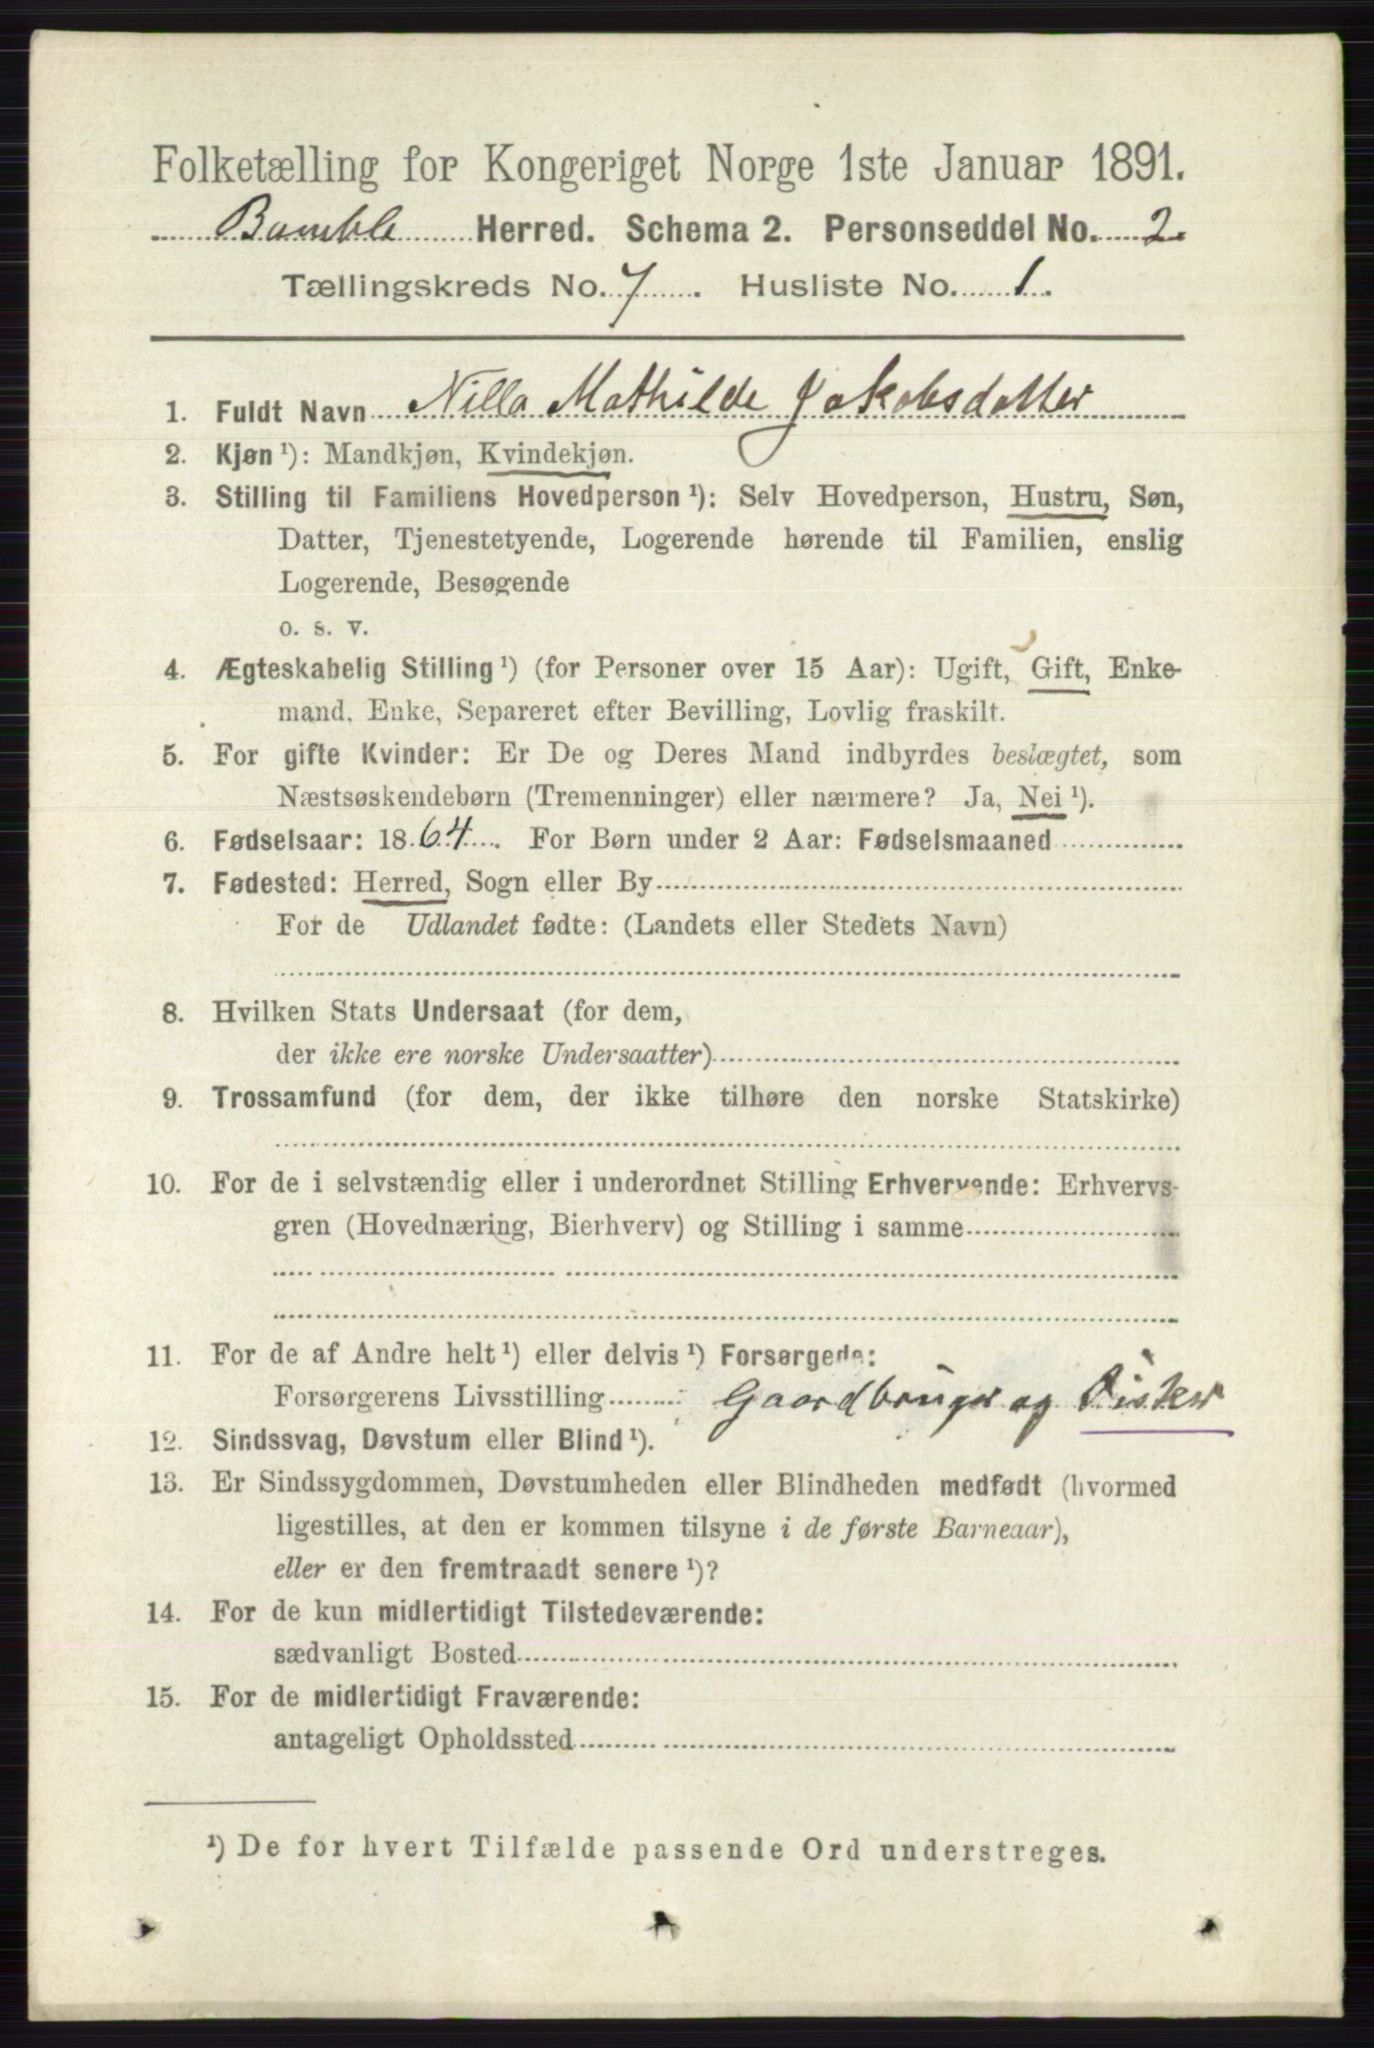 Folketælling for Kongeriget Norge 1ste Januar 1891.
Bamble Herred. Schema 2. Personseddel No. 2.
Tællingskreds No. 7. Husliste No. 1.
1. Fuldt Navn Nilla Mathilde Jakobsdatter
2. Kjøn ¹): Mandkjøn, Kvindekjøn.
3. Stilling til Familiens Hovedperson ¹): Selv Hovedperson, Hustru, Søn,
Datter, Tjenestetyende, Logerende hørende til Familien, enslig
Logerende, Besøgende
o. s. v.
4. Ægteskabelig Stilling ¹) (for Personer over 15 Aar): Ugift, Gift, Enke-
mand, Enke, Separeret efter Bevilling, Lovlig fraskilt.
5. For gifte Kvinder: Er De og Deres Mand indbyrdes beslægtet, som
Næstsøskendebørn (Tremenninger) eller nærmere? Ja, Nei ¹).
6. Fødselsaar: 1864. For Børn under 2 Aar: Fødselsmaaned
7. Fødested: Herred, Sogn eller By
For de Udlandet fødte: (Landets eller Stedets Navn)
8. Hvilken Stats Undersaat (for dem,
der ikke ere norske Undersaatter)
9. Trossamfund (for dem, der ikke tilhøre den norske Statskirke)
10. For de i selvstændig eller i underordnet Stilling Erhvervende: Erhvervs-
gren (Hovednæring, Bierhverv) og Stilling i samme
11. For de af Andre helt ¹) eller delvis ¹) Forsørgede:
Forsørgerens Livsstilling Gaardbruger og Fisker
12. Sindssvag, Døvstum eller Blind ¹).
13. Er Sindssygdommen, Døvstumheden eller Blindheden medfødt (hvormed
ligestilles, at den er kommen tilsyne i de første Barneaar),
eller er den fremtraadt senere ¹)?
14. For de kun midlertidigt Tilstedeværende:
sædvanligt Bosted
15. For de midlertidigt Fraværende:
antageligt Opholdssted
¹) De for hvert Tilfælde passende Ord understreges.